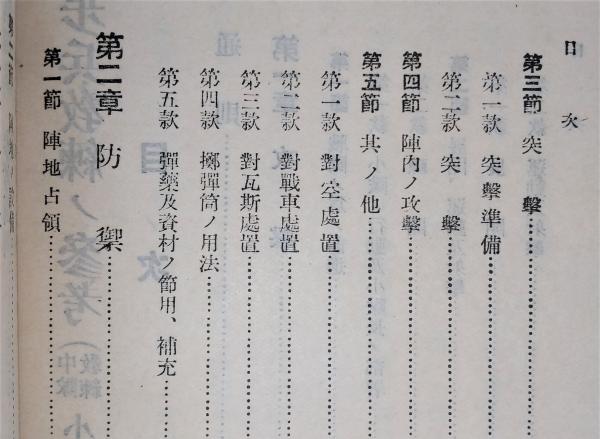 目次
第三節 突擊
第一款 突擊準備
第二款 突擊
第四節 陣內ノ攻擊
第五節 其ノ他
第一款 對空處置
第二款 對戰車處置
第三款 對瓦斯處置
第四款 擲彈筒ノ用法
第五款 彈藥及資材ノ節用、補充
第二章 防禦
第一節 陣地占領